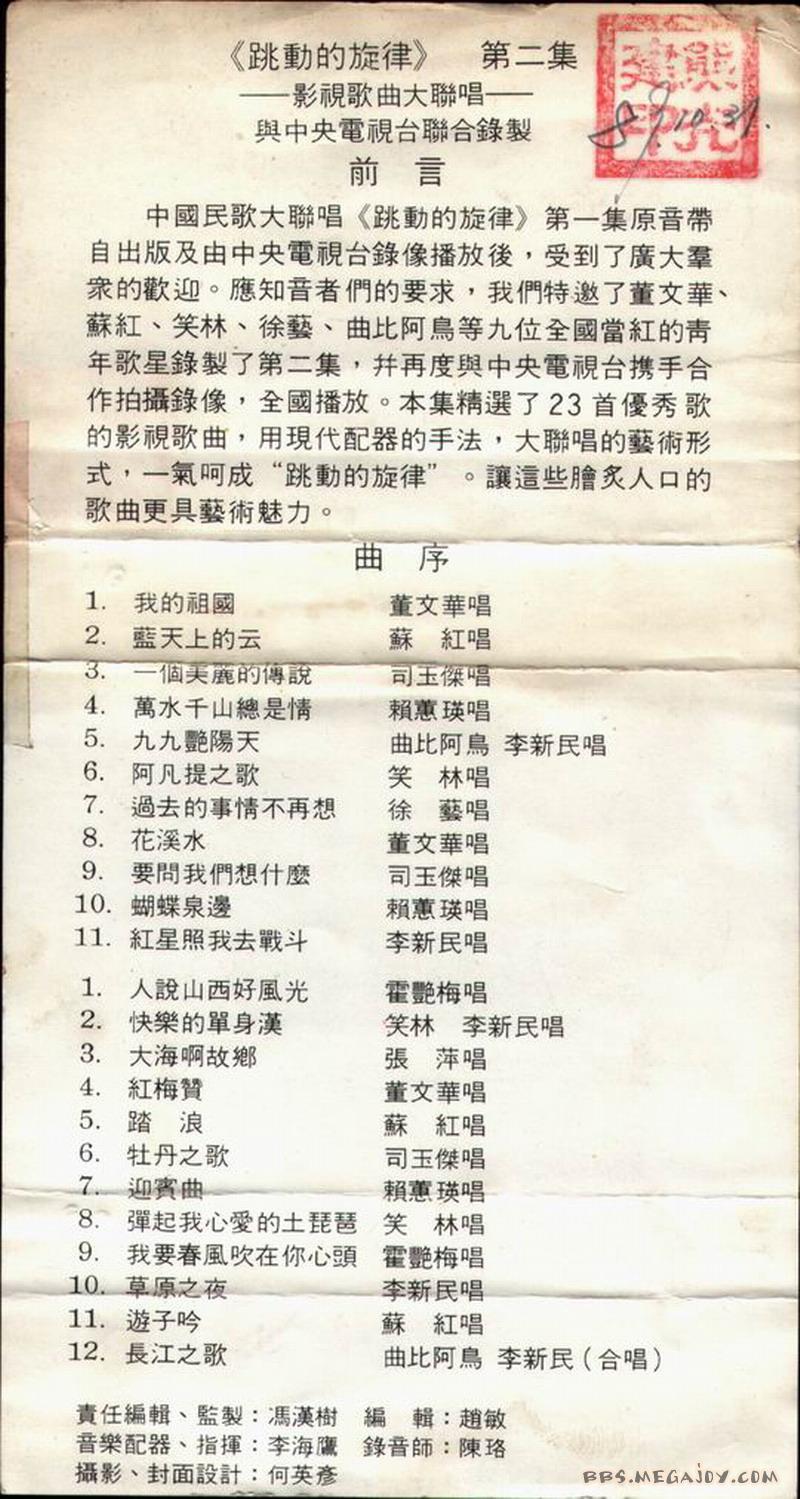 《跳動的旋律》 第二集
——影視歌曲大聯唱——
與中央電視台聯合錄製
89.10.31.
前言
中國民歌大聯唱《跳動的旋律》第一集原音帶
自出版及由中央電視台錄像播放後，受到了廣大羣
衆的歡迎。應知音者們的要求，我們特邀了董文華、
蘇紅、笑林、徐藝、曲比阿烏等九位全國當紅的青
年歌星錄製了第二集，幷再度與中央電視台携手合
作拍攝錄像，全國播放。本集精選了23首優秀歌
的影視歌曲，用現代配器的手法，大聯唱的藝術形
式，一氣呵成“跳動的旋律”。讓這些膾炙人口的
歌曲更具藝術魅力。
曲序
1. 我的祖國 董文華唱
2. 藍天上的云 蘇 紅唱
3. 一個美麗的傳說 司玉傑唱
4. 萬水千山總是情 賴蕙瑛唱
5. 九九艷陽天 曲比阿烏 李新民唱
6. 阿凡提之歌 笑 林唱
7. 過去的事情不再想 徐 藝唱
8. 花溪水 董文華唱
9. 要問我們想什麼 司玉傑唱
10. 蝴蝶泉邊 賴蕙瑛唱
11. 紅星照我去戰斗 李新民唱
1. 人說山西好風光 霍艷梅唱
2. 快樂的單身漢 笑林 李新民唱
3. 大海啊故鄉 張 萍唱
4. 紅梅贊 董文華唱
5. 踏 浪 蘇 紅唱
6. 牡丹之歌 司玉傑唱
7. 迎賓曲 賴蕙瑛唱
8. 彈起我心愛的土琵琶 笑 林唱
9. 我要春風吹在你心頭 霍艷梅唱
10. 草原之夜 李新民唱
11. 遊子吟 蘇 紅唱
12. 長江之歌 曲比阿烏 李新民（合唱）
責任編輯、監製：馮漢樹 編 輯：趙敏
音樂配器、指揮：李海鷹 錄音師：陳珞
攝影、封面設計：何英彥
BBS.MEGAJOY.COM